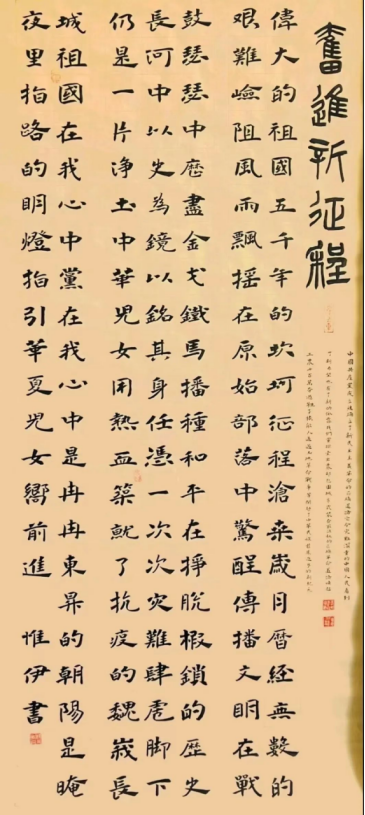 奮進新征程
中國共產黨
偉大的祖國五千年的坎坷征程滄桑歲月曆經無數的
艱難嶮阻風雨飄搖在原始部落中驚醒傳播文眀在戰
鼓瑟瑟中歷盡金戈鐵馬播種和平在掙脫枷鎖的歷史
長河中以史為鏡以銘其身任憑一次次灾難肆虐脚下
仍是一片净土中華兒女用熱血築就了抗疫的巍峩長
城祖國在我心中黨在我心中是冉冉東昇的朝陽是晻
夜里指路的眀燈指引華夏兒女嚮前進 惟伊書